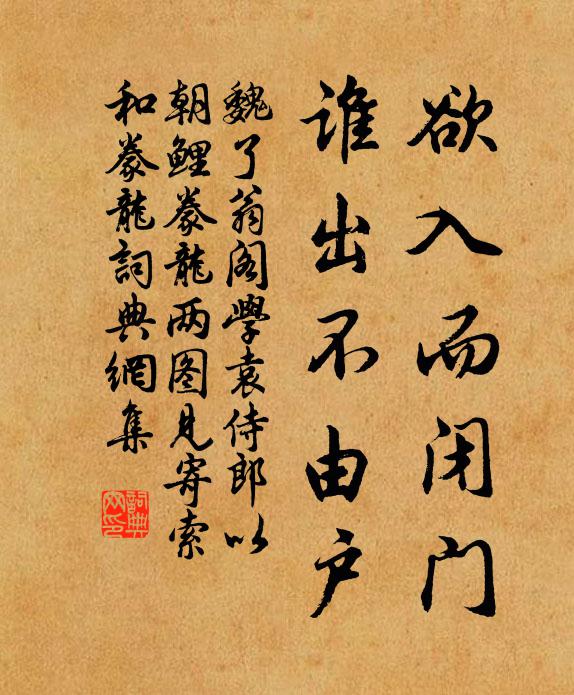 欲入而闭门
谁出不由户
魏了翁阁学袁侍郎以
朝鲤豢龙两图见寄索
和豢龙詞典網集
詞典
网印